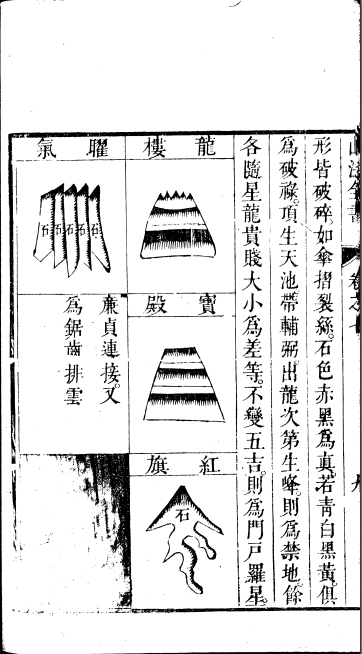 形皆破碎如傘摺裂絲石色赤黑爲真若青白黑黃俱
爲破祿頂生天池帶輔弼出龍次第生峰則爲禁地餘
各隨星龍貴賤大小爲差等不變五吉則爲門戸羅星
龍樓
寶殿
紅旗
石
曜氣
石石石石
廉貞連接又
爲鋸齒排雲